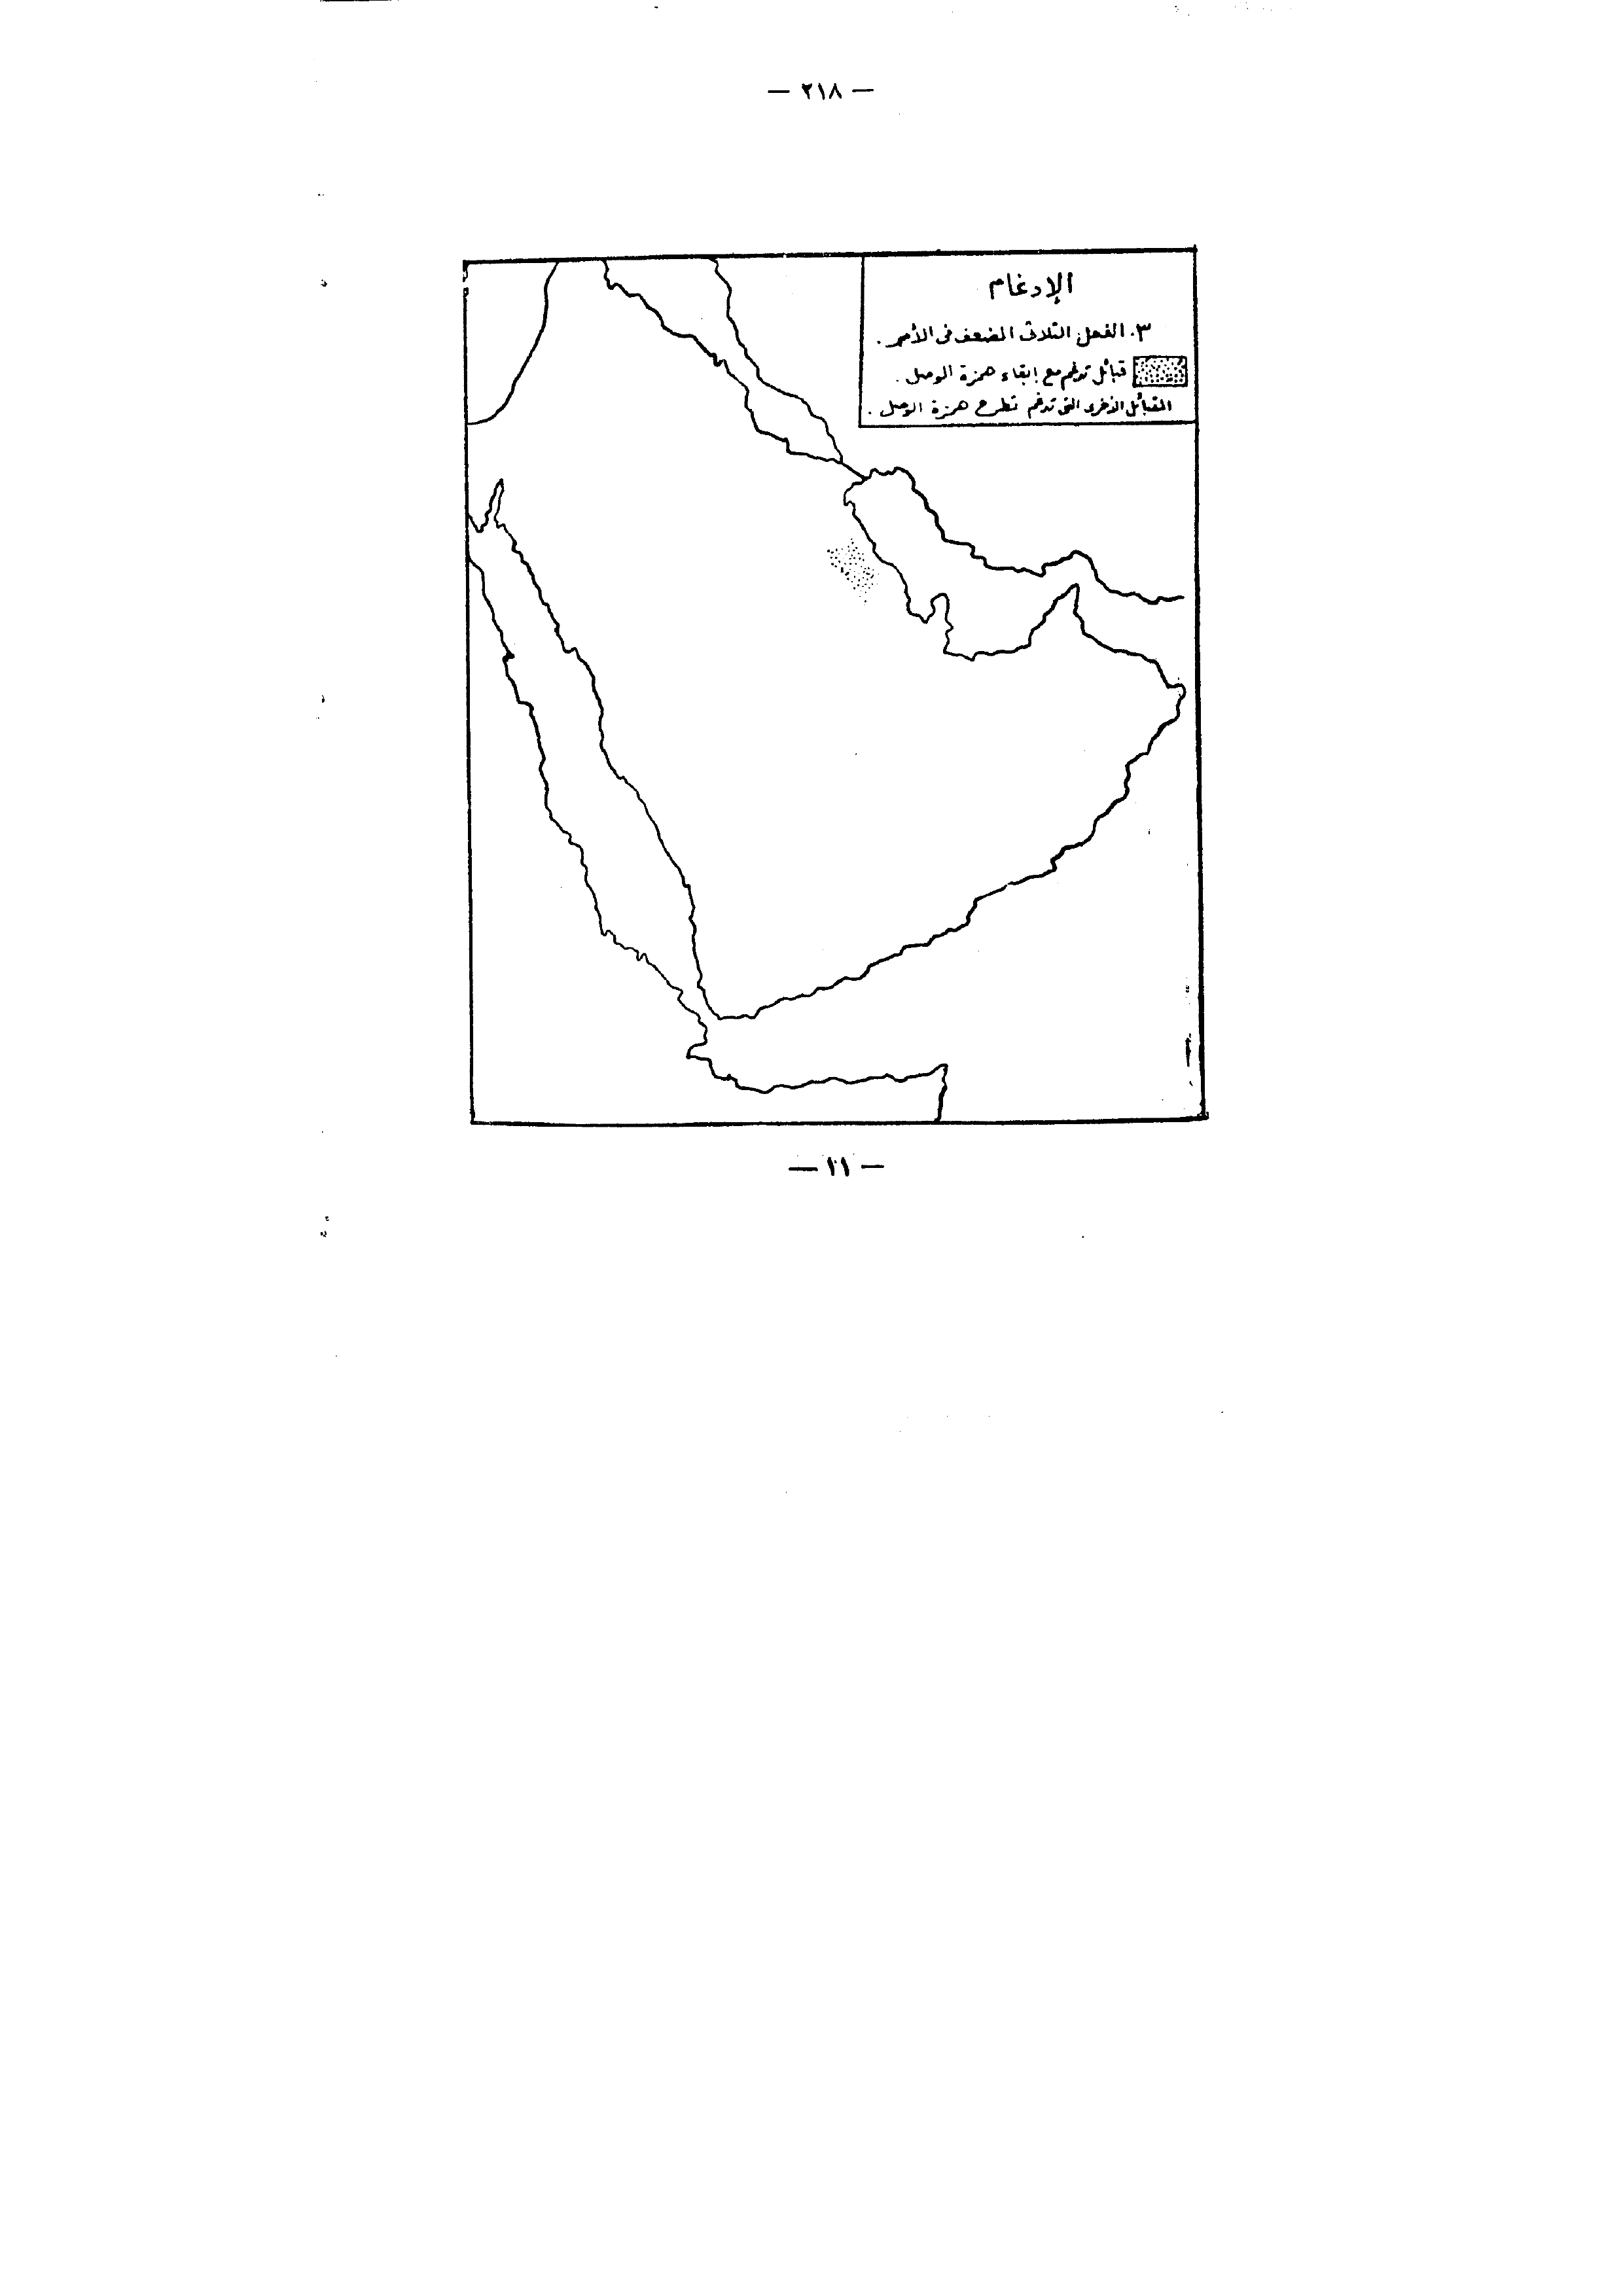 — ٢١٨ —
الإدغام
٣. الفعل الثلاثى المضعف فى الأمر .
قبائل تدغم مع إبقاء همزة الوصل .
القبائل الأخرى التى تدغم تطرح همزة الوصل .
— ٢١ —